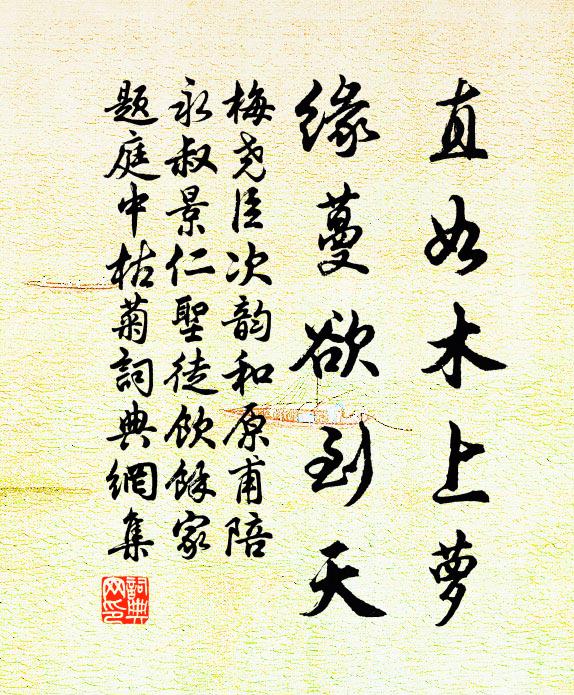 直如木上萝
缘蔓欲到天
梅尧臣次韵和原甫陪
永叔景仁聖徒饮馀家
题庭中枯菊詞典網集
詞典
网印